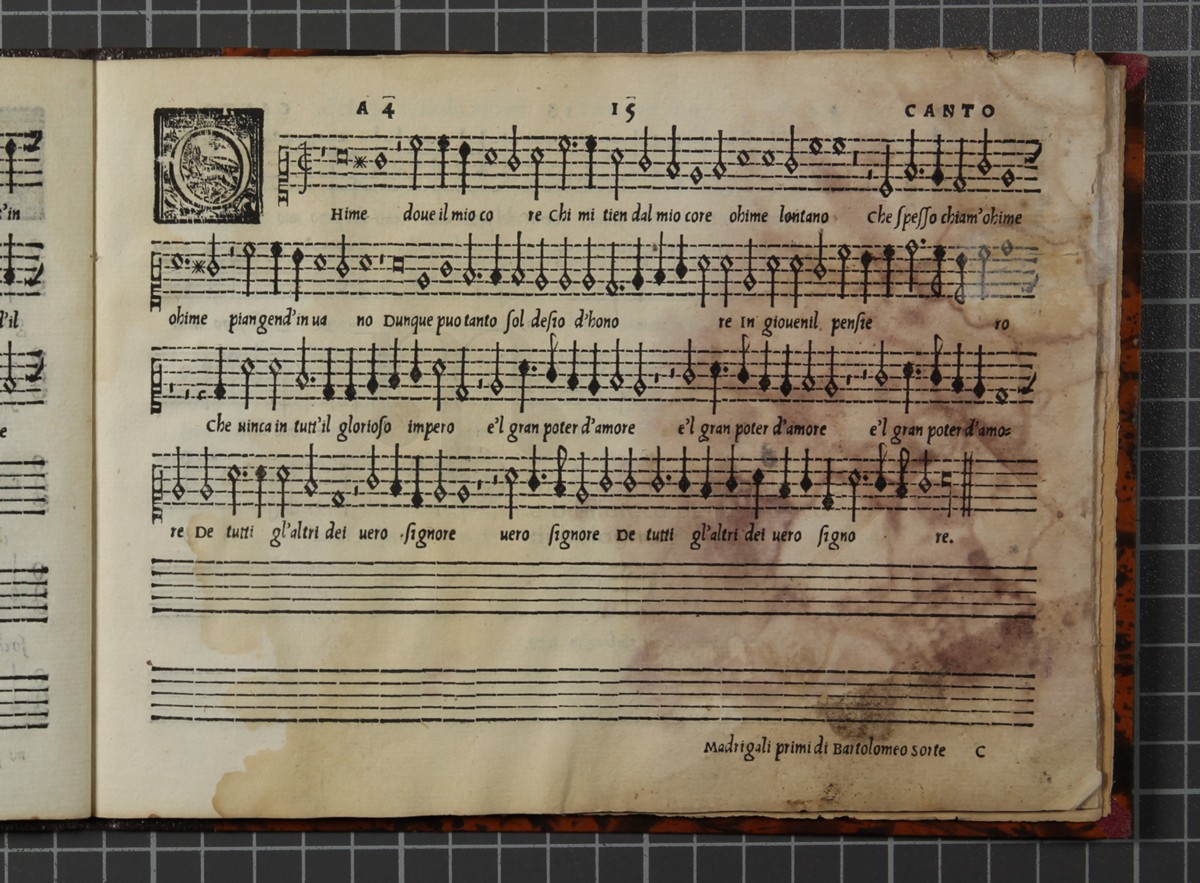 A 4 15 CANTO
OHime doue il mio co re Chi mi tien dal mio core ohime lontano Che speſſo chiam'ohime
ohime piangend'in ua no Dunque puo tanto ſol deſio d'hono re In giouenil penſie ro
Che uinca in tutt'il glorioſo impero e'l gran poter d'amore e'l gran poter d'amore e'l gran poter d'amo=
re De tutti gl'altri dei uero ſignore uero ſignore De tutti gl'altri dei uero ſigno re.
Madrigali primi di Bartolomeo Sorte C